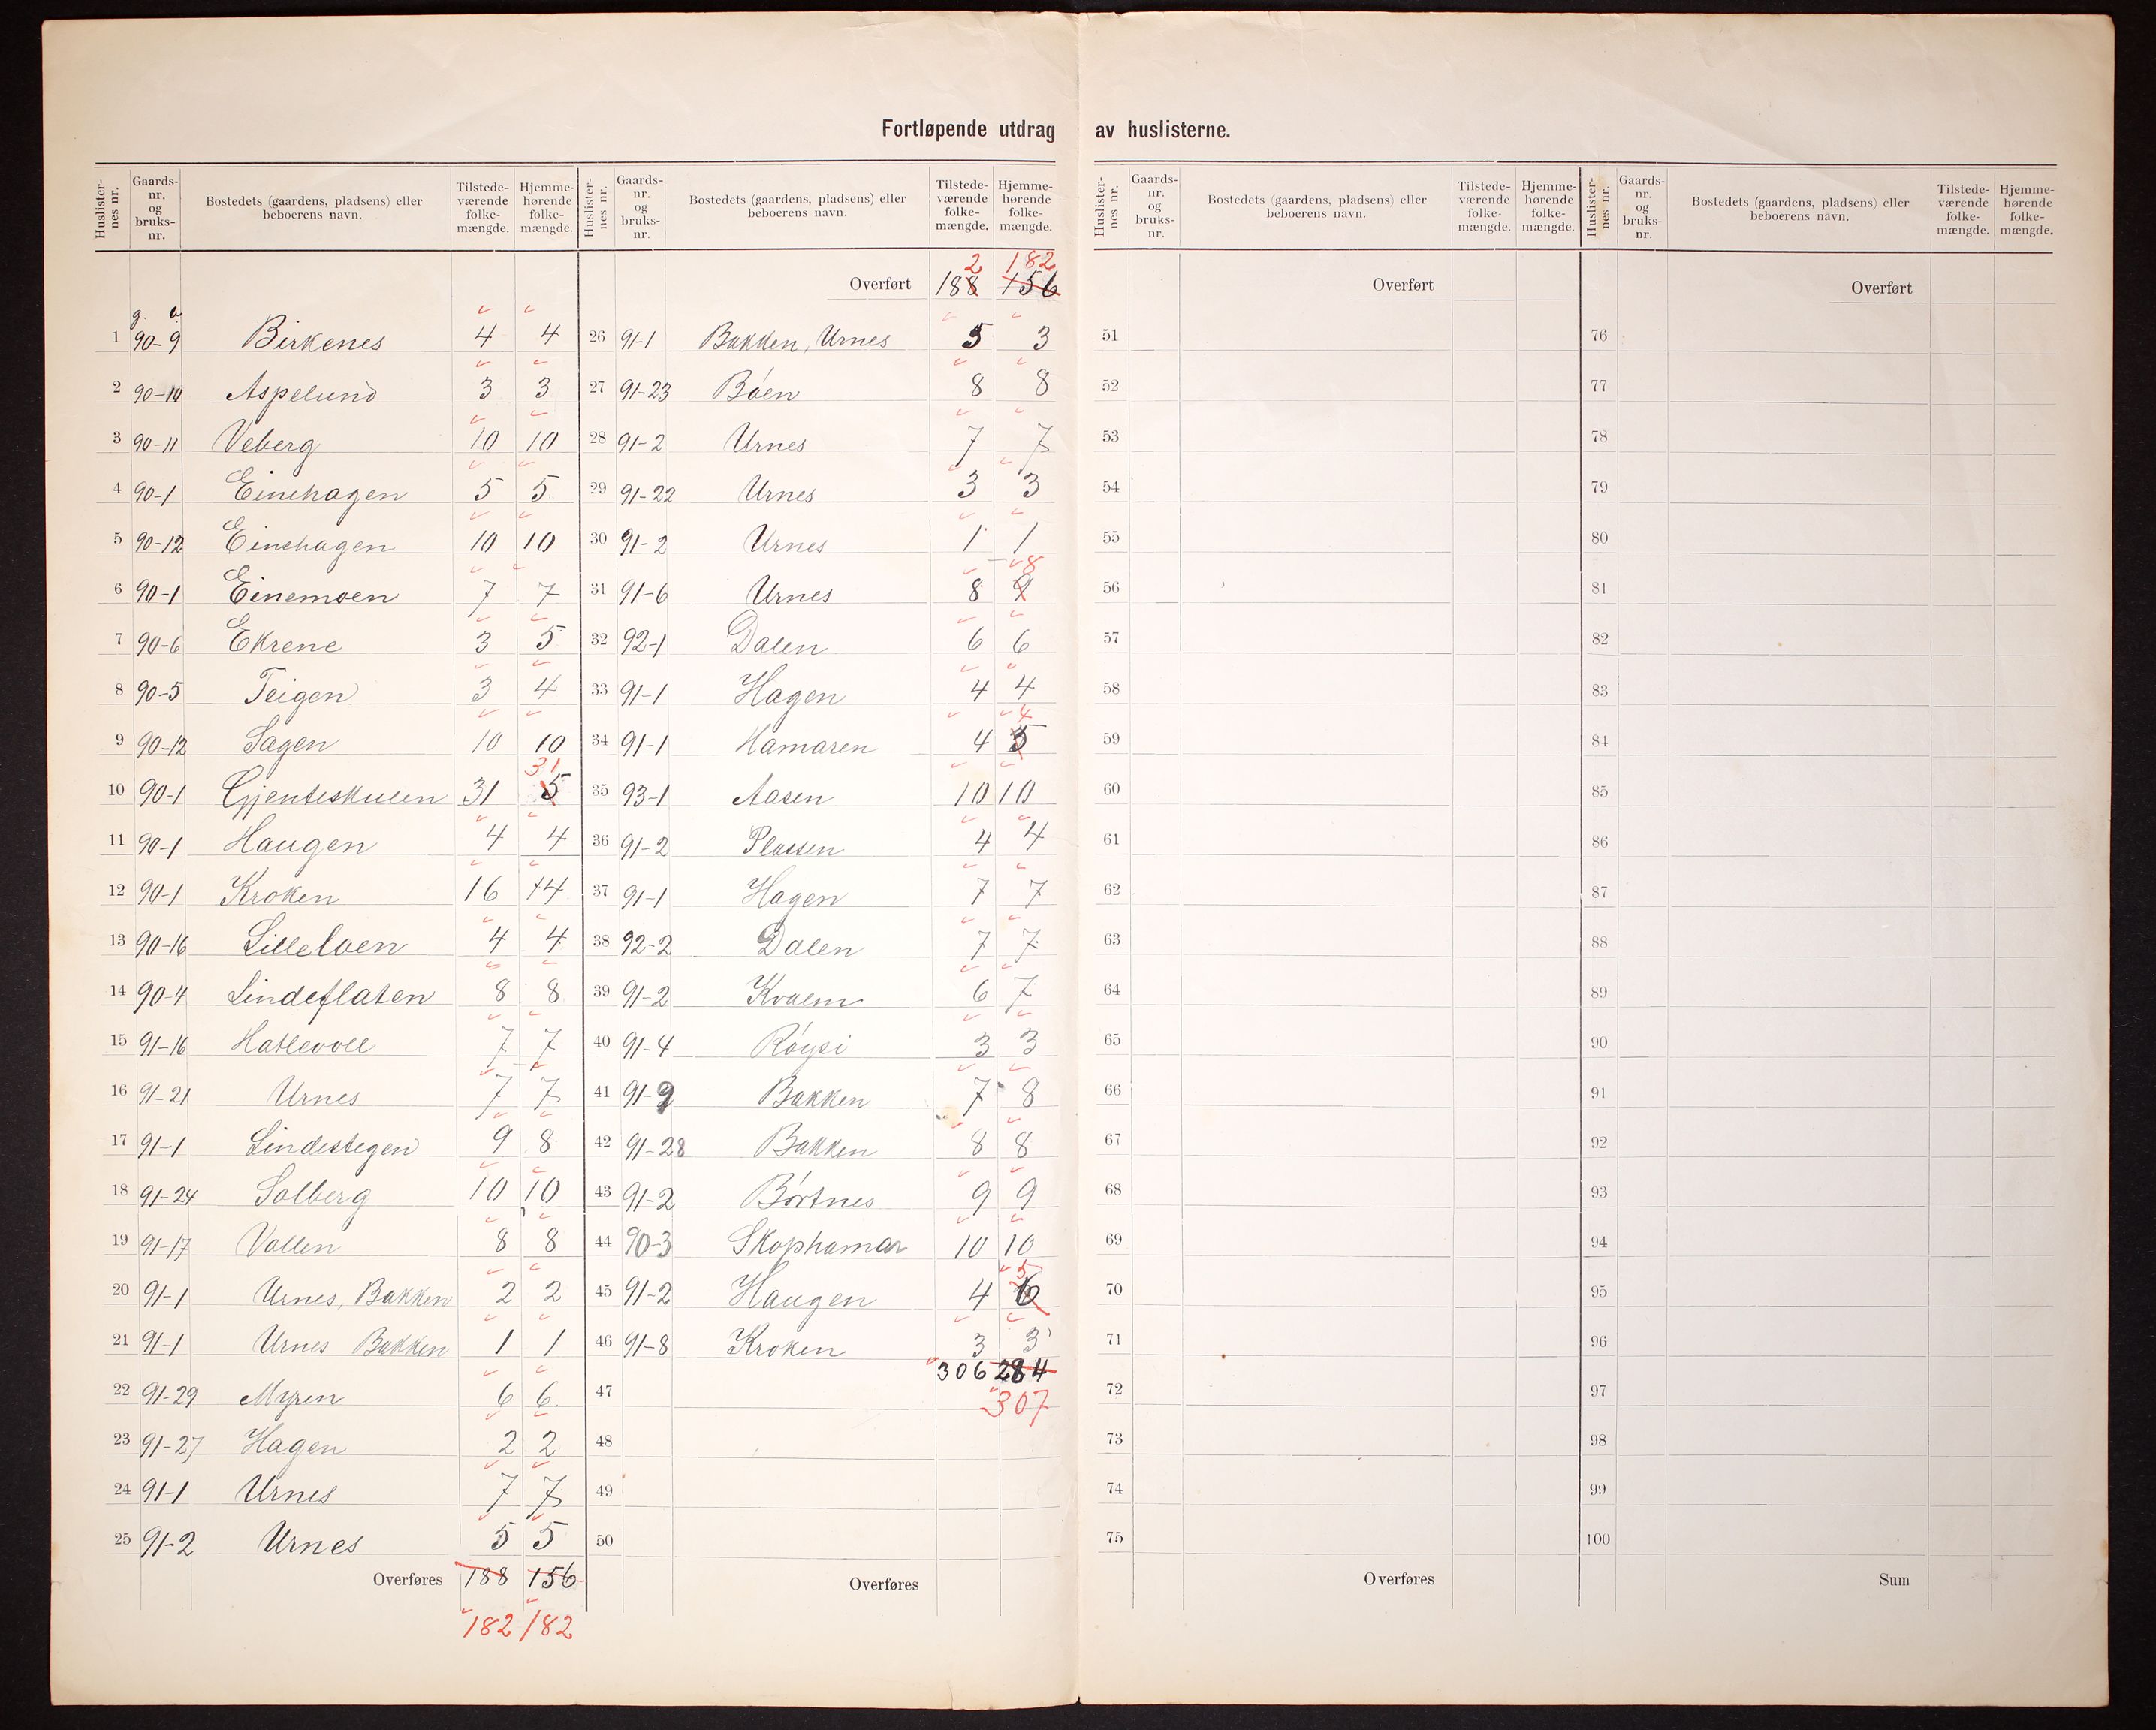 Fortløpende utdrag av huslisterne.
Huslister-nes nr. Gaards-nr. og bruks-nr. Bostedets (gaardens, pladsens) eller beboerens navn. Tilstede-værende folke-mængde. Hjemme-hørende folke-mængde.
g. b.
1 90-9 Birkenes 4 4
2 90-10 Aspelund 3 3
3 90-11 Veberg 10 10
4 90-1 Einehagen 5 5
5 90-12 Einehagen 10 10
6 90-1 Einemoen 7 7
7 90-6 Ekrene 3 5
8 90-5 Teigen 3 4
9 90-12 Sagen 10 10
31
10 90-1 Gjenteskulen 31 5
11 90-1 Haugen 4 4
12 90-1 Kroken 16 14
13 90-16 Lilleloen 4 4
14 90-4 Lindeflaten 8 8
15 91-16 Hatlevoll 7 7
16 91-21 Urnes 7 7
17 91-1 Lindestegen 9 8
18 91-24 Solberg 10 10
19 91-17 Vollen 8 8
20 91-1 Urnes, Bakken 2 2
21 91-1 Urnes Bakken 1 1
22 91-29 Myren 6 6
23 91-27 Hagen 2 2
24 91-1 Urnes 7 7
25 91-2 Urnes 5 5
Overføres 188 156
182 182
Huslister-nes nr. Gaards-nr. og bruks-nr. Bostedets (gaardens, pladsens) eller beboerens navn. Tilstede-værende folke-mængde. Hjemme-hørende folke-mængde.
2 182
Overført 188 156
26 91-1 Bakken, Urnes 5 3
27 91-23 Bóen 8 8
28 91-2 Urnes 7 7
29 91-22 Urnes 3 3
30 91-2 Urnes 1 1
8
31 91-6 Urnes 8 9
32 92-1 Dalen 6 6
33 91-1 Hagen 4 4
4
34 91-1 Hamaren 4 5
35 93-1 Aasen 10 10
36 91-2 Plassen 4 4
37 91-1 Hagen 7 7
38 92-2 Dalen 7 7
39 91-2 Kvalm 6 7
40 91-4 Róysi 3 3
41 91-9 Bakken 7 8
42 91-28 Bakken 8 8
43 91-2 Bórtnes 9 9
44 90-3 Skophamar 10 10
5
45 91-2 Haugen 4 6
46 91-8 Kroken 3 3
306 284
47
307
48
49
50
Overføres
Huslister-nes nr. Gaards-nr. og bruks-nr. Bostedets (gaardens, pladsens) eller beboerens navn. Tilstede-værende folke-mængde. Hjemme-hørende folke-mængde.
Overført
51
52
53
54
55
56
57
58
59
60
61
62
63
64
65
66
67
68
69
70
71
72
73
74
75
Overføres
Huslister-nes nr. Gaards-nr. og bruks-nr. Bostedets (gaardens, pladsens) eller beboerens navn. Tilstede-værende folke-mængde. Hjemme-hørende folke-mængde.
Overført
76
77
78
79
80
81
82
83
84
85
86
87
88
89
90
91
92
93
94
95
96
97
98
99
100
Sum